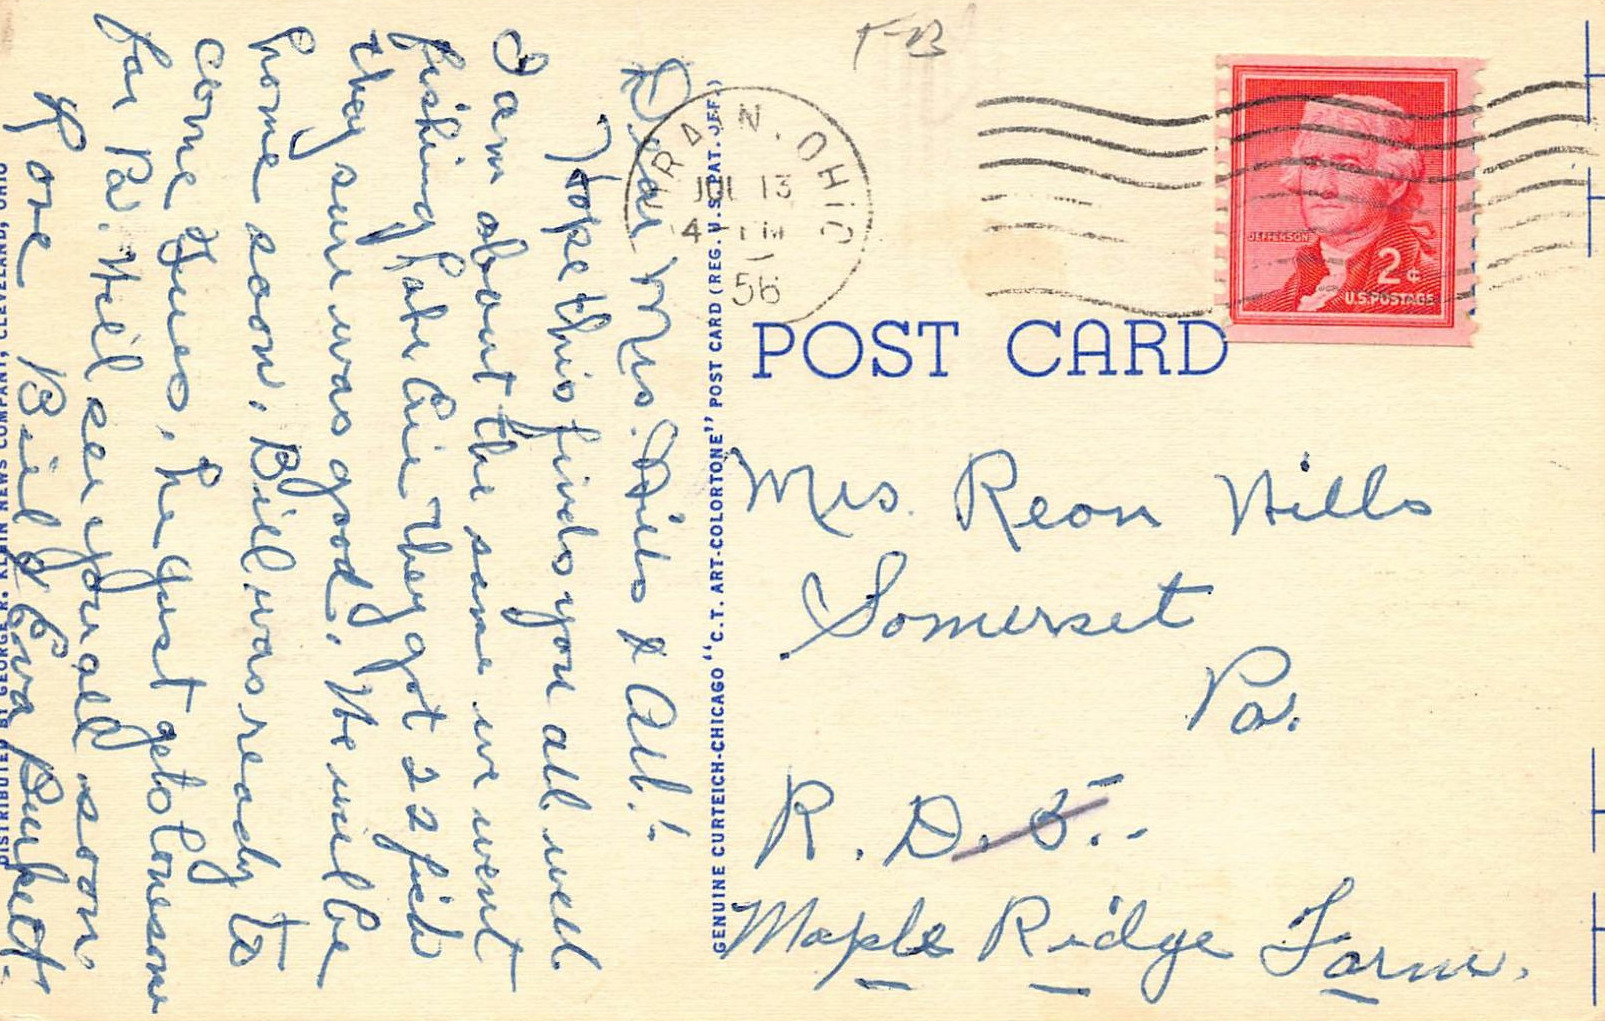 Dear Mrs. Hills & All!
Hope this finds you all well
I am about the same we went
fishing Lake Erie they got 22 fish
they sure was good. We will be
home soon. Bill was ready to
come Tues, he just gets lonesome
for Pa. Will see you all soon
Love Bill & Eva Burkett.
DISTRIBUTED BY GEORGE R. KLEIN NEWS COMPANY, CLEVELAND, OHIO
GENUINE CURTEICH-CHICAGO "C.T. ART-COLORTONE" POST CARD (REG. U.S. PAT. OFF.)
OHIO
JUL 13
4 PM
56
JEFFERSON
2¢
U.S. POSTAGE
POST CARD
Mrs. Reon Hills
Somerset
Pa.
R. D. 5.
Maple Ridge Farm.